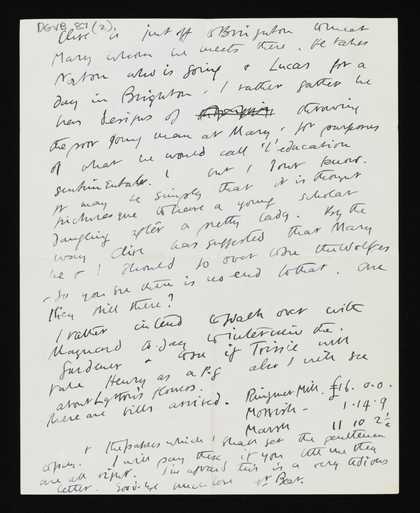 DGVB 87 (2).
Clive is just off to Brighton to meet
Mary whom he meets there. He takes
who is going & Lucas for a
day in Brighton. I rather gather he
has designs of throwing
the poor young man at Mary, for purposes
of what he would call 'l'education
sentimentale'. I but I dont know.
It may be simply that it is thought
picturesque to have a young scholar
dangling after a pretty lady. By the
way Clive has suggested that Mary
he & I should go over to see the Wolfes
- So you see there is no end to that. Are
they still there?
I rather intend to walk over with
Maynard to-day to interview the
Gardener & see if Trissie will
take Henry as a P.G. also I will see
about Lytton's flowers.
here are bills arrived. Ringmer Mill. £16. 0. 0.
1. 14. 9
Marsh 11 10 2½
& the papers which I shall get the gentlemen
I will pay these if you let me know they
are all right. I'm afraid this is a very tedious
letter. Goodbye much love yr Bear.